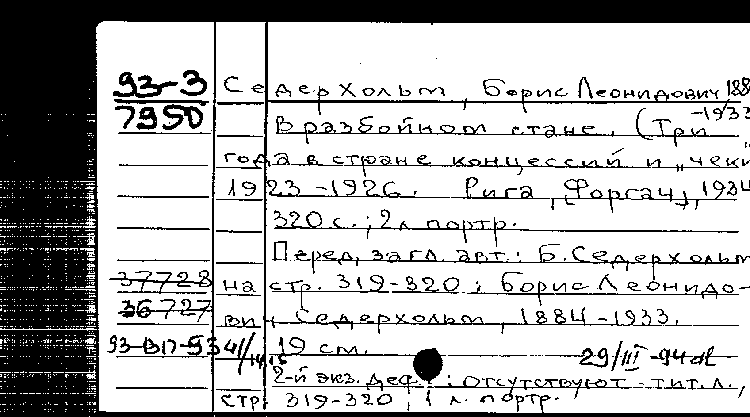 93-3 Седерхольм, Борис Леонидович 188
7950 -1933
В разбойном стане. (Три
года в стране концессий и „чеки
1923-1926. Рига, [Форгач], 1934
320 с.; 2 л. портр.
Перед. загл. авт.: Б. Седерхольм
37728 на стр. 319-320: Борис Леонидо-
36727 вич Седерхольм, 1884-1933.
19 см. 29/III-94
2-й экз. деф.: отсутствуют тит. л.,
стр. 319-320, 1 л. портр.